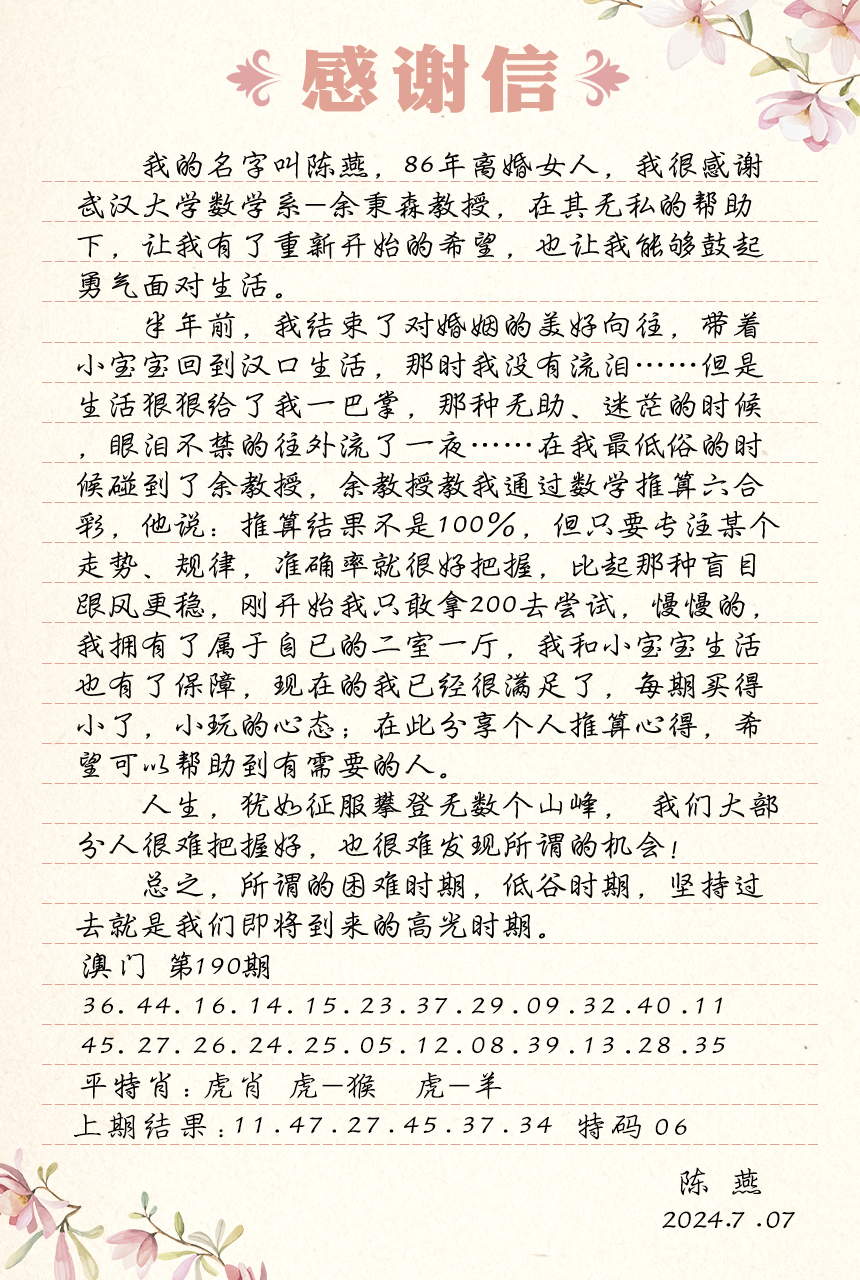 感谢信
我的名字叫陈燕，86年离婚女人，我很感谢
武汉大学数学系—余秉森教授，在其无私的帮助
下，让我有了重新开始的希望，也让我能够鼓起
勇气面对生活。
半年前，我结束了对婚姻的美好向往，带着
小宝宝回到汉口生活，那时我没有流泪……但是
生活狠狠给了我一巴掌，那种无助、迷茫的时候
，眼泪不禁的往外流了一夜……在我最低俗的时
候碰到了余教授，余教授教我通过数学推算六合
彩，他说：推算结果不是100%，但只要专注某个
走势、规律，准确率就很好把握，比起那种盲目
跟风更稳，刚开始我只敢拿200去尝试，慢慢的，
我拥有了属于自已的二室一厅，我和小宝宝生活
也有了保障，现在的我已经很满足了，每期买得
小了，小玩的心态；在此分享个人推算心得，希
望可以帮助到有需要的人。
人生，犹如征服攀登无数个山峰， 我们大部
分人很难把握好，也很难发现所谓的机会！
总之，所谓的困难时期，低谷时期，坚持过
去就是我们即将到来的高光时期。
澳门 第190期
36.44.16.14.15.23.37.29.09.32.40.11
45.27.26.24.25.05.12.08.39.13.28.35
平特肖：虎肖 虎—猴 虎—羊
上期结果：11.47.27.45.37.34 特码 06
陈 燕
2024.7.07